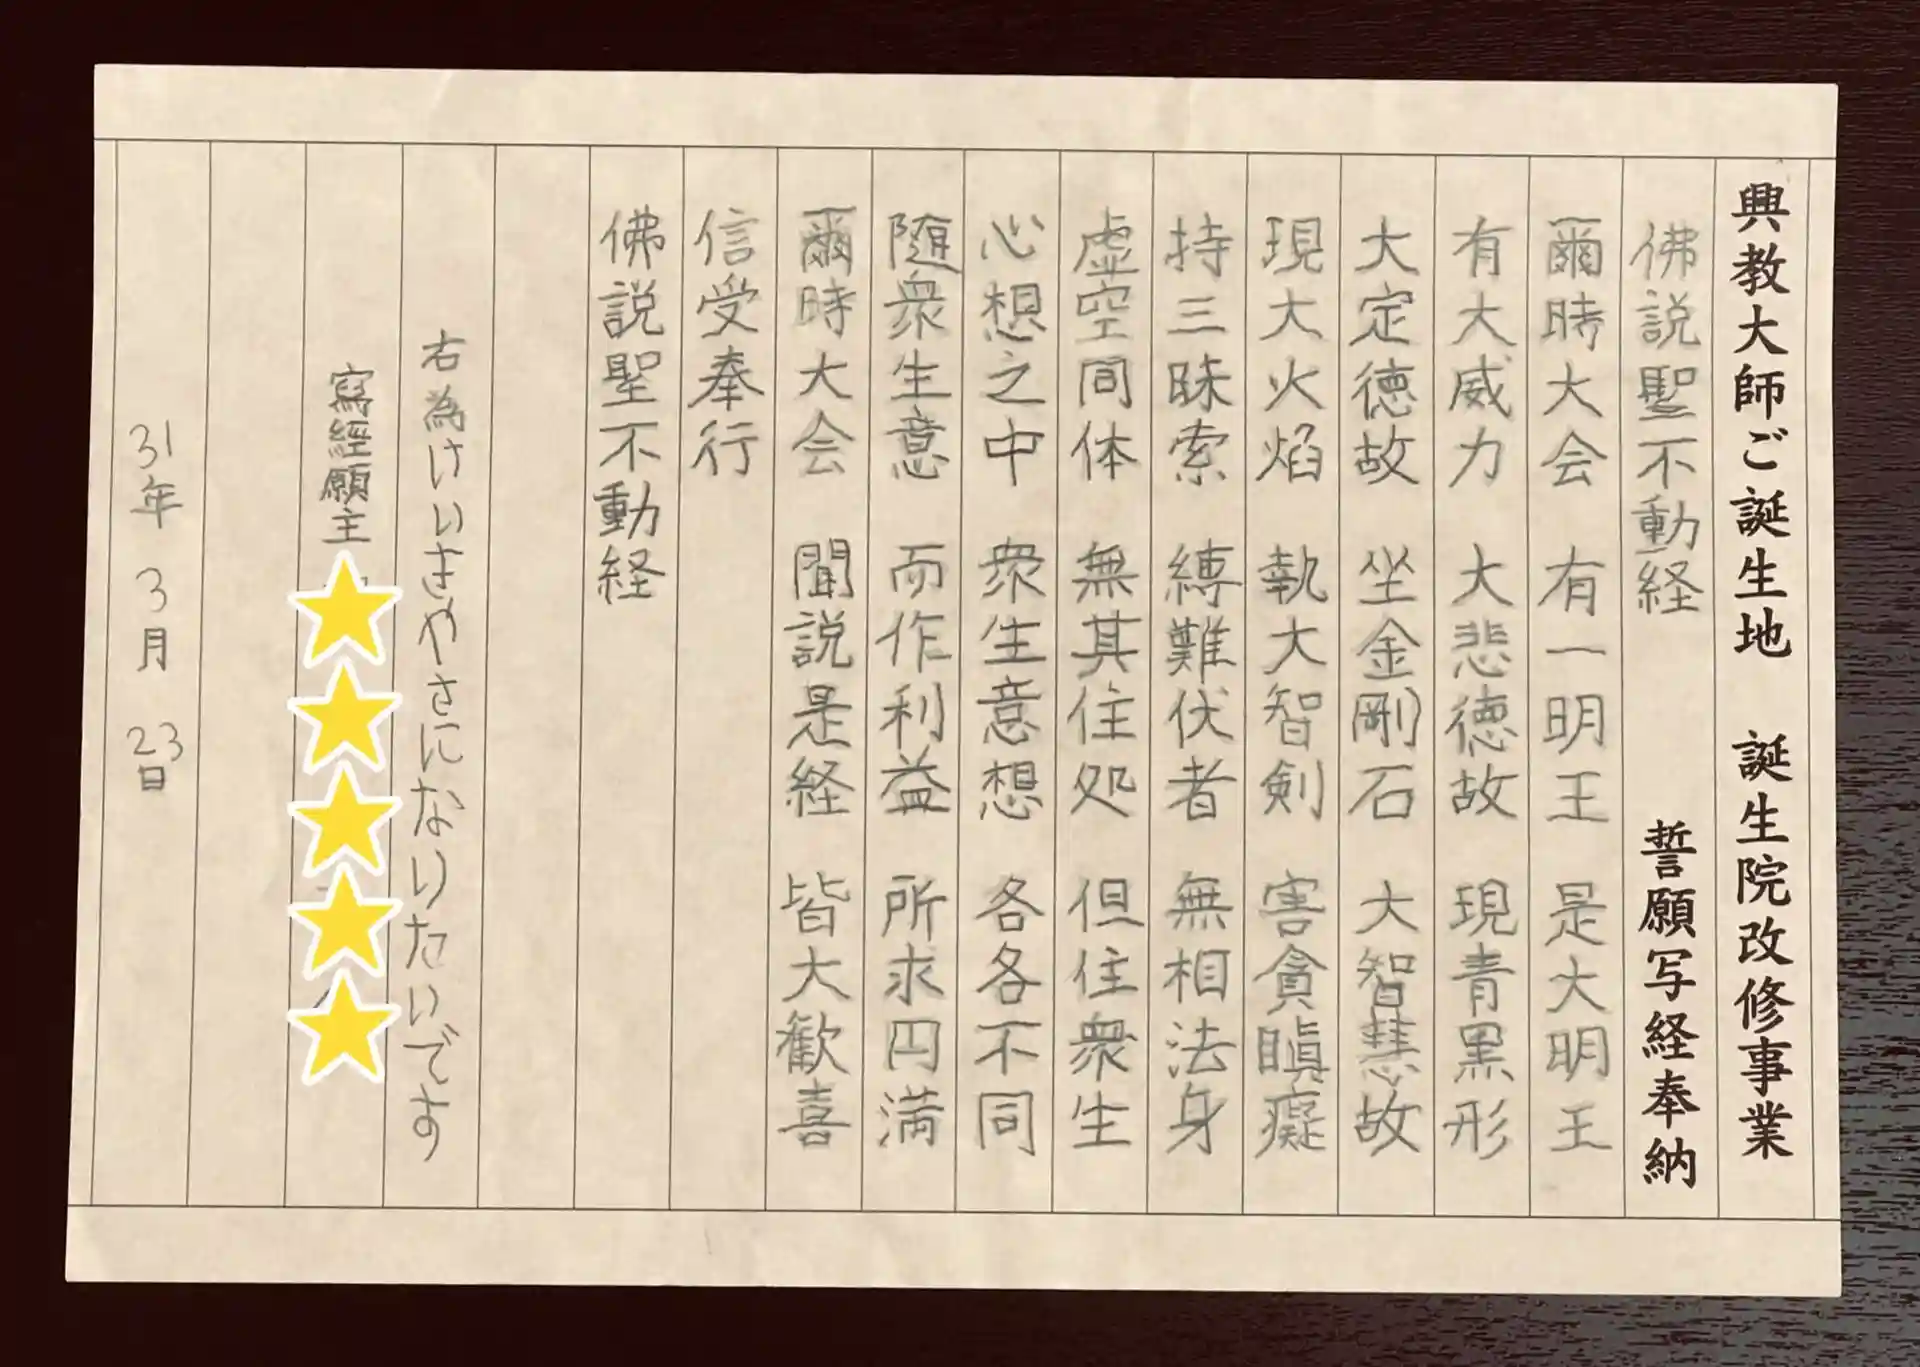 興教大師ご誕生地 誕生院改修事業
誓願写経奉納
佛説聖不動経
爾時大会 有一明王 是大明王
有大威力 大悲徳故 現青黒形
大定徳故 坐金剛石 大智慧故
現大火焰 執大智剣 害貪瞋癡
持三昧索 縛難伏者 無相法身
虚空同体 無其住処 但住衆生
心想之中 衆生意想 各各不同
随衆生意 而作利益 所求円満
爾時大会 聞説是経 皆大歓喜
信受奉行
佛説聖不動経
右為けいさやさになりたいです
寫經願主
31年 3月 23日